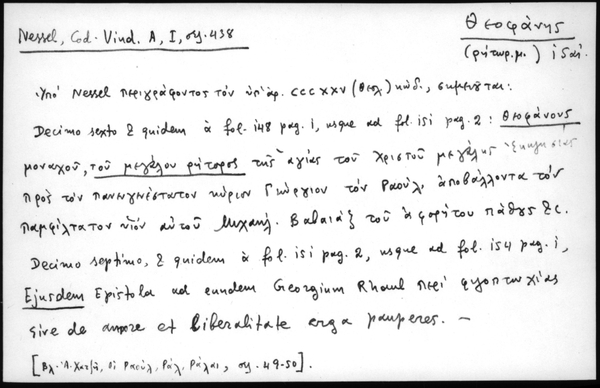 Nessel, Cod. Vind. A, I, σσ. 438
Θεοφάνης
(ρήτωρ. μ.) ιδαί.
Ὑπό Nessel περιγράφοντος τόν ὑπ' ἀρ. CCCXXV (θεολ) κώδ., σημειοῦται:
Decimo sexto & quidem à fol. 148 pag. 1, usque ad fol. 151 pag. 2: Θεοφάνους
μοναχοῦ, τοῦ μεγάλου ρήτορος τῆς ἁγίας τοῦ Χριστοῦ μεγάλης Ἐκκλησίας
πρός τόν πανευγενέστατον κύριον Γεώργιον τόν Ραούλ, ἀποβάλλοντα τόν
παμφίλτατον υἱόν αὐτοῦ Μιχαήλ. Βαβαιάξ τοῦ ἀφορήτου πάθους &c.
Decimo septimo, & quidem à fol. 151 pag. 2, usque ad fol. 154 pag. 1,
Ejusdem Epistola ad eundem Georgium Rhaul περί φιλοπτωχίας
sive de amore et liberalitate erga pauperes. —
[Βλ. Ἀ. Χατζῆ, οἱ Ραούλ, Ράλ, Ράλαι, σσ. 49-50].